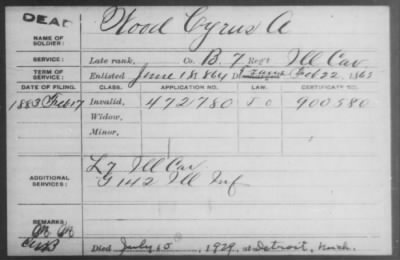 DEAD
NAME OF SOLDIER: Wood Cyrus A
SERVICE: Late rank, Co. B. 7 Reg't Ill Cav.
TERM OF SERVICE: Enlisted June 18 1864 Feb 22, 1865
DATE OF FILING. CLASS. APPLICATION NO. LAW. CERTIFICATE NO.
1883 Feb 17 Invalid, 472780 900580
Widow,
Minor,
ADDITIONAL SERVICES: L 7 Ill Cav
G 142 Ill Inf
REMARKS:
Died July 1929, at Detroit, Mich.